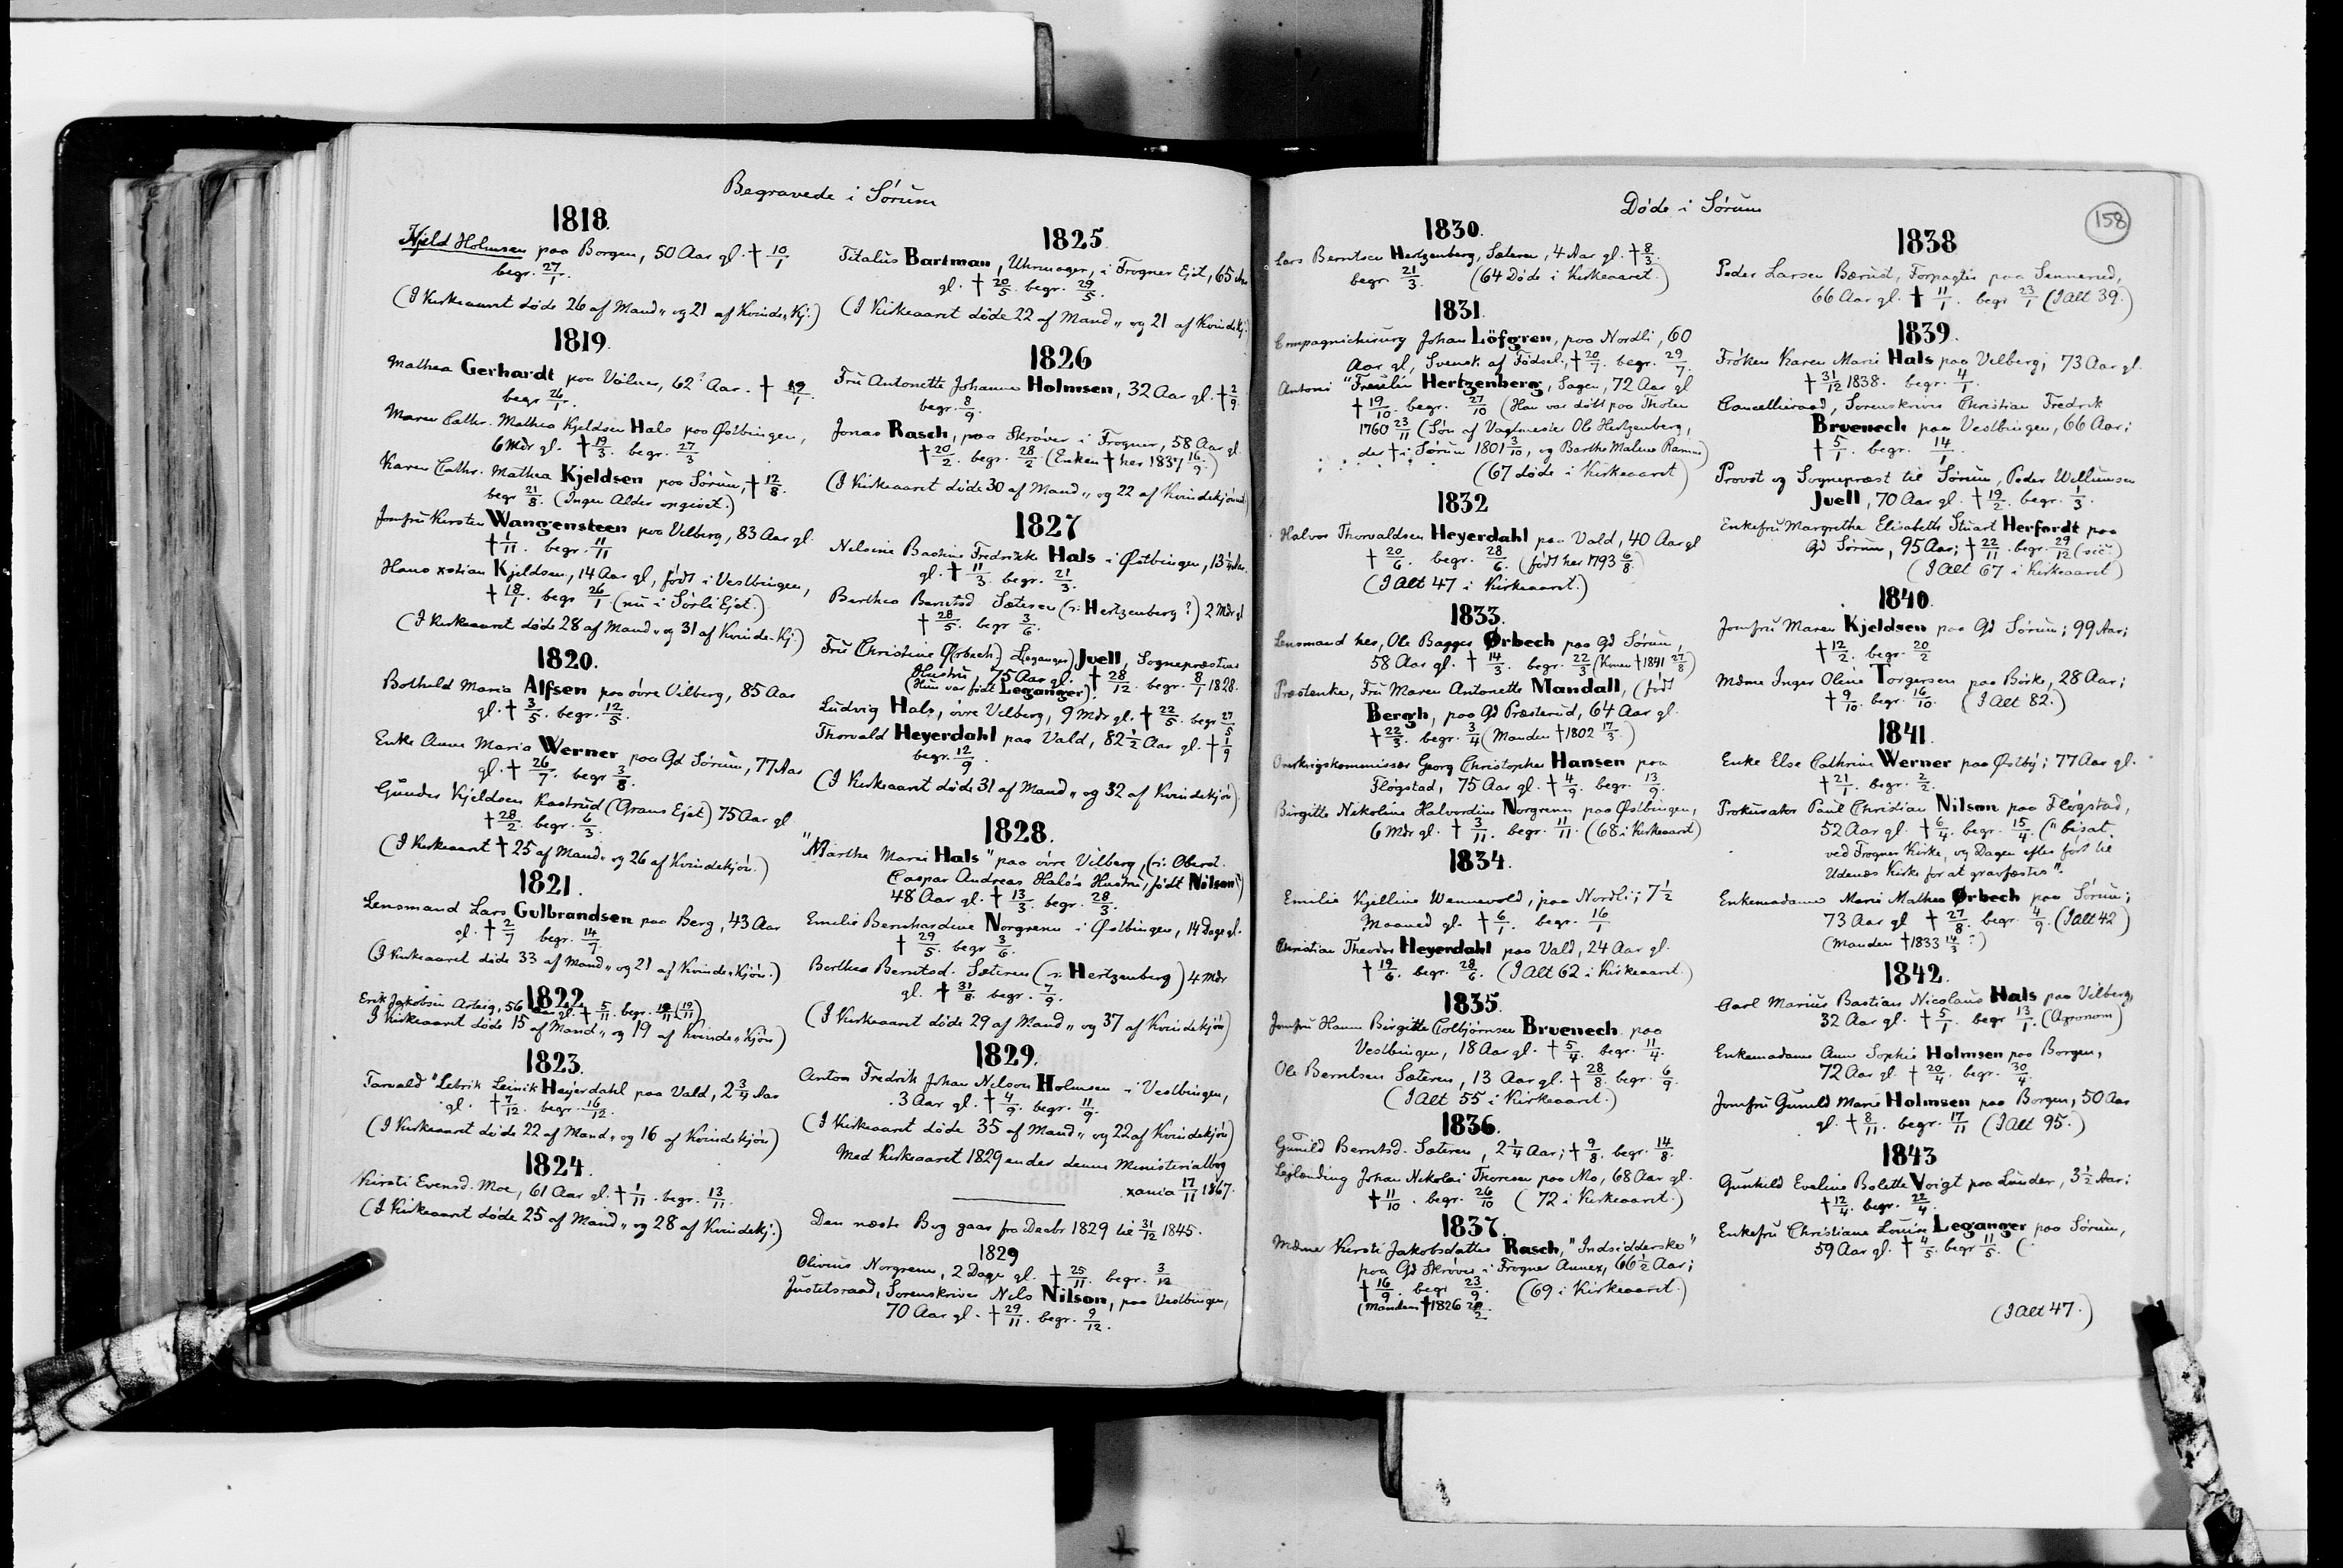 Begravede i Sørum
1818.
Kjeld Holmsen paa Borgen, 50 Aar gl. † 10/1
begr. 27/1.
(I Kirkeaaret døde 26 af Mand„ og 21 af Kvinde„Kj.)
1819.
Mathea Gerhardt paa Vølner, 62? Aar. † 19/1.
begr 26/1.
Maren Cathr. Mathea Kjeldsen Hals paa Østbingen,
6 Mdr gl. † 19/3. begr. 27/3
Karen Cathr. Mathea Kjeldsen paa Sørum, † 12/8.
begr 21/8. (Ingen Alder angivet.)
Jomfru Kirsten Wangensteen paa Vilberg, 83 Aar gl.
† 1/11. begr. 11/11
Hans xstian Kjeldsen, 14 Aar gl, født i Vestbingen,
† 18/1. begr 26/1 (nu i Sørli Ejet.)
(I Kirkeaaret døde 28 af Mand„ og 31 af Kvinde-Kj.)
1820.
Botheld Maria Alfsen paa øvre Vilberg, 85 Aar
gl. † 3/5. begr. 12/5.
Enke Anne Maria Werner paa Gd Sørum, 77 Aar
gl. † 26/7. begr 3/8.
Gunder Kjeldsen Kastrud (Grans Ejet) 75 Aar gl
† 28/2. begr. 6/3.
(I Kirkeaaret † 25 af Mand„ og 26 af Kvindekjøn.)
1821.
Lensmand Lars Gulbrandsen paa Berg, 43 Aar
gl. † 2/7 begr. 14/7.
(I Kirkeaaret døde 33 af Mand„ og 21 af Kvinde„Kjøn.)
1822
Erik Jakobsen Arteig, 56 Aar gl. † 5/11. begr. (19/11)
I Kirkeaaret døde 15 af Mand„ og 19 af Kvinde„Kjøn)
1823.
Tarvald "Lebrik Leinik Heyerdahl paa Vald, 2 3/4 Aar
gl. † 7/12. begr. 16/12.
(I Kirkeaaret døde 22 af Mand„ og 16 af Kvindekjøn)
1824.
Kirsti Evensd. Moe, 61 Aar gl. † 1/11. begr. 13/11.
(I Kirkeaaret døde 25 af Mand„ og 28 af Kvindekj.)
1825.
Titalus Bartman, Uhrmager, i Frogner Ejet, 65 Aar
gl. † 20/5. begr. 29/5.
(I Kirkeaaret døde 22 af Mand„ og 21 af Kvindekj.)
1826
Fru Antonette Johanne Holmsen, 32 Aar gl. † 2/9
begr. 8/9.
Jonas Rasch, paa Skrøver i Frogner, 58 Aar gl.
† 20/2. begr. 28/2 (Enken † her 1837 16/9.)
(I Kirkeaaret døde 30 af Mand„ og 22 af Kvindekjønnet)
1827
Nilsine Bastine Fredrikke Hals i Østbingen, 13 1/4 Aar.
gl. † 11/3. begr. 21/3.
Berthea Berntsd Sæteren (ɔ: Hertzenberg?) 2 Mdr gl
† 28/5. begr 3/6.
Fru Christine Ø(rbech) L(eganger) Juell, Sognepræstens
Hustru 75 Aar gl. † 28/12. begr. 8/1 1828.
(Hun var født Leganger).
Ludvig Hals, øvre Vilberg, 9 Mdr gl. † 22/5. begr 27/5
Thorvald Heyerdahl paa Vald, 82 1/2 Aar gl. † 1/9
begr. 12/9.
(I Kirkeaaret døde 31 af Mand„ og 32 af Kvindekjøn)
1828.
"Marthe Marie Hals" paa øvre Vilberg, (ɔ: Oberst.
Caspar Andreas Hals's Hustru, født Nilson)
48 Aar gl. † 13/3. begr. 28/3.
Emilie Bernhardine Norgrenn i Østbingen, 14 Dage gl.
† 29/5. begr 3/6.
Berthea Berntsd. Sæteren (ɔ: Hertzenberg) 4 Mdr
gl. † 31/8. begr. 7/9.
(I Kirkeaaret døde 29 af Mand„ og 37 af Kvindekjøn)
1829.
Anton Fredrik Johan Nilson Holmsen i Vestbingen,
3 Aar gl. † 4/9. begr. 11/9.
(I Kirkeaaret døde 35 af Mand„ og 22 af Kvindekjøn)
Med Kirkeaaret 1829 ender denne Ministerialbog
xania 17/11 1867.
Den næste Bog gaar fra Decbr 1829 til 31/12 1845.
1829
Olivius Norgrenn, 2 Dage gl. † 25/11. begr. 3/12
Justitsraad, Sorenskriver Nils Nilson, paa Vestbingen,
70 Aar gl. † 29/11. begr. 9/12.
Døde i Sørum
158
1830.
Lars Berntsen Hertzenberg, Sæteren, 4 Aar gl. † 8/3.
begr. 21/3. (64 Døde i Kirkeaaret.)
1831.
Compagnichirurg Johan Löfgren, paa Nordli, 60
Aar gl, Svensk af Fødsel, † 20/7. begr. 29/7.
Antoni "Fraulin Hertzenberg, Sagen, 72 Aar gl
† 19/10. begr. 27/10 (Han var døbt paa Thoten
1760 23/11 (Søn af Vagtmester Ole Hertzenberg,
der † i Sørum 1801 3/10, og Barthe Malene Ramm)
(67 døde i Kirkeaaret)
1832
Halvor Thorvaldsen Heyerdahl paa Vald, 40 Aar gl
† 20/6. begr. 28/6. (født her 1793 6/8)
(I Alt 47 i Kirkeaaret.)
1833.
Lensmand her, Ole Bagger Ørbech paa Gd Sørum,
58 Aar gl. † 14/3. begr. 22/3 (Konen † 1841 27/8)
Præsteenke, Fru Maren Antonette Mandall, (født
Bergh, paa Gd Præsterud, 64 Aar gl.
† 22/3. begr. 3/4 (Manden † 1802 17/3.)
Overkrigskommissær Georg Christopher Hansen paa
Fløgstad, 75 Aar gl. † 4/9. begr. 13/9.
Birgitte Nikoline Halvordine Norgrenn paa Østbingen,
6 Mdr gl. † 3/11. begr. 11/11. (68 i Kirkeaaret)
1834.
Emilie Kjelline Wennevold, paa Nordli; 7 1/2
Maaned gl. † 6/1. begr. 16/1
Christian Theodor Heyerdahl paa Vald, 24 Aar gl.
† 19/6. begr. 28/6. (I Alt 62 i Kirkeaaret.)
1835.
Jomfru Hanne Birgitte Colbjørnsen Bruenech paa
Vestbingen, 18 Aar gl. † 5/4. begr. 11/4.
Ole Berntsen Sæteren, 13 Aar gl. † 28/8. begr. 6/9.
(I Alt 55 i Kirkeaaret.)
1836.
Gunild Berntsd. Sæteren, 2 1/4 Aar; † 9/8. begr. 14/8.
Lejlending Johan Nikolai Thoresen paa Mo, 68 Aar gl.
† 11/10. begr. 26/10 (72 i Kirkeaaret.)
1837.
Mdme Kirsti Jakobsdatter Rasch, "Indsidderske"
paa Gd Skrøver i Frogner Annex, 66 1/2 Aar;
† 16/9. begr 23/9. (69 i Kirkeaaret.)
(Manden † 1826 20/2.
1838
Peder Larsen Bærust, Forpagter paa Sennerud,
66 Aar gl. † 11/1. begr 23/1 (I Alt 39.)
1839.
Frøken Karen Marie Hals paa Vilberg; 73 Aar gl.
† 31/12 1838. begr. 4/1.
Cancelliraad, Sorenskriver Christian Fredrik
Bruenech paa Vestbingen, 66 Aar;
† 5/1. begr. 14/1.
Provst og Sognepræst til Sørum, Peder Willumsen
Juell, 70 Aar gl. † 19/2. begr. 1/3.
Enkefru Margrethe Elisabeth Stuart Herfordt paa
Gd Sørum, 95 Aar; † 22/11. begr. 29/12 (sic.)
(I Alt 67 i Kirkeaaret)
1840.
Jomfru Maren Kjeldsen paa Gd Sørum; 99 Aar;
† 12/2. begr. 20/2
Mdme Inger Oline Torgersen paa Børke, 28 Aar;
† 9/10. begr. 16/10. (I Alt 82.)
1841.
Enke Else Cathrine Werner paa Østby; 77 Aar gl.
† 21/1. begr. 2/2.
Prokurator Paul Christian Nilson paa Fløgstad,
52 Aar gl. † 6/4. begr. 15/4. ("bisat
ved Frogner Kirke, og Dagen efter ført til
Udenes Kirke for at gravfæstes".
Enkemadame Marie Mathea Ørbech paa Sørum;
73 Aar gl † 27/8. begr. 4/9. (I Alt 42)
(Manden † 1833 14/3?)
1842.
Carl Marius Bastian Nicolaus Hals paa Vilberg,
32 Aar gl. † 5/1. begr 13/1. (Agronom)
Enkemadame Anne Sophie Holmsen paa Borgen,
72 Aar gl. † 20/4. begr. 30/4.
Jomfru Gunild Marie Holmsen paa Borgen, 50 Aar
gl. † 8/11. begr. 17/11 (I Alt 95.)
1843
Gunhild Eveline Bolette Voigt paa Lunder, 3 1/2 Aar;
† 12/4. begr. 22/4.
Enkefru Christiane Louise Leganger paa Sørum,
59 Aar gl. † 4/5. begr 11/5. (
(I Alt 47.)